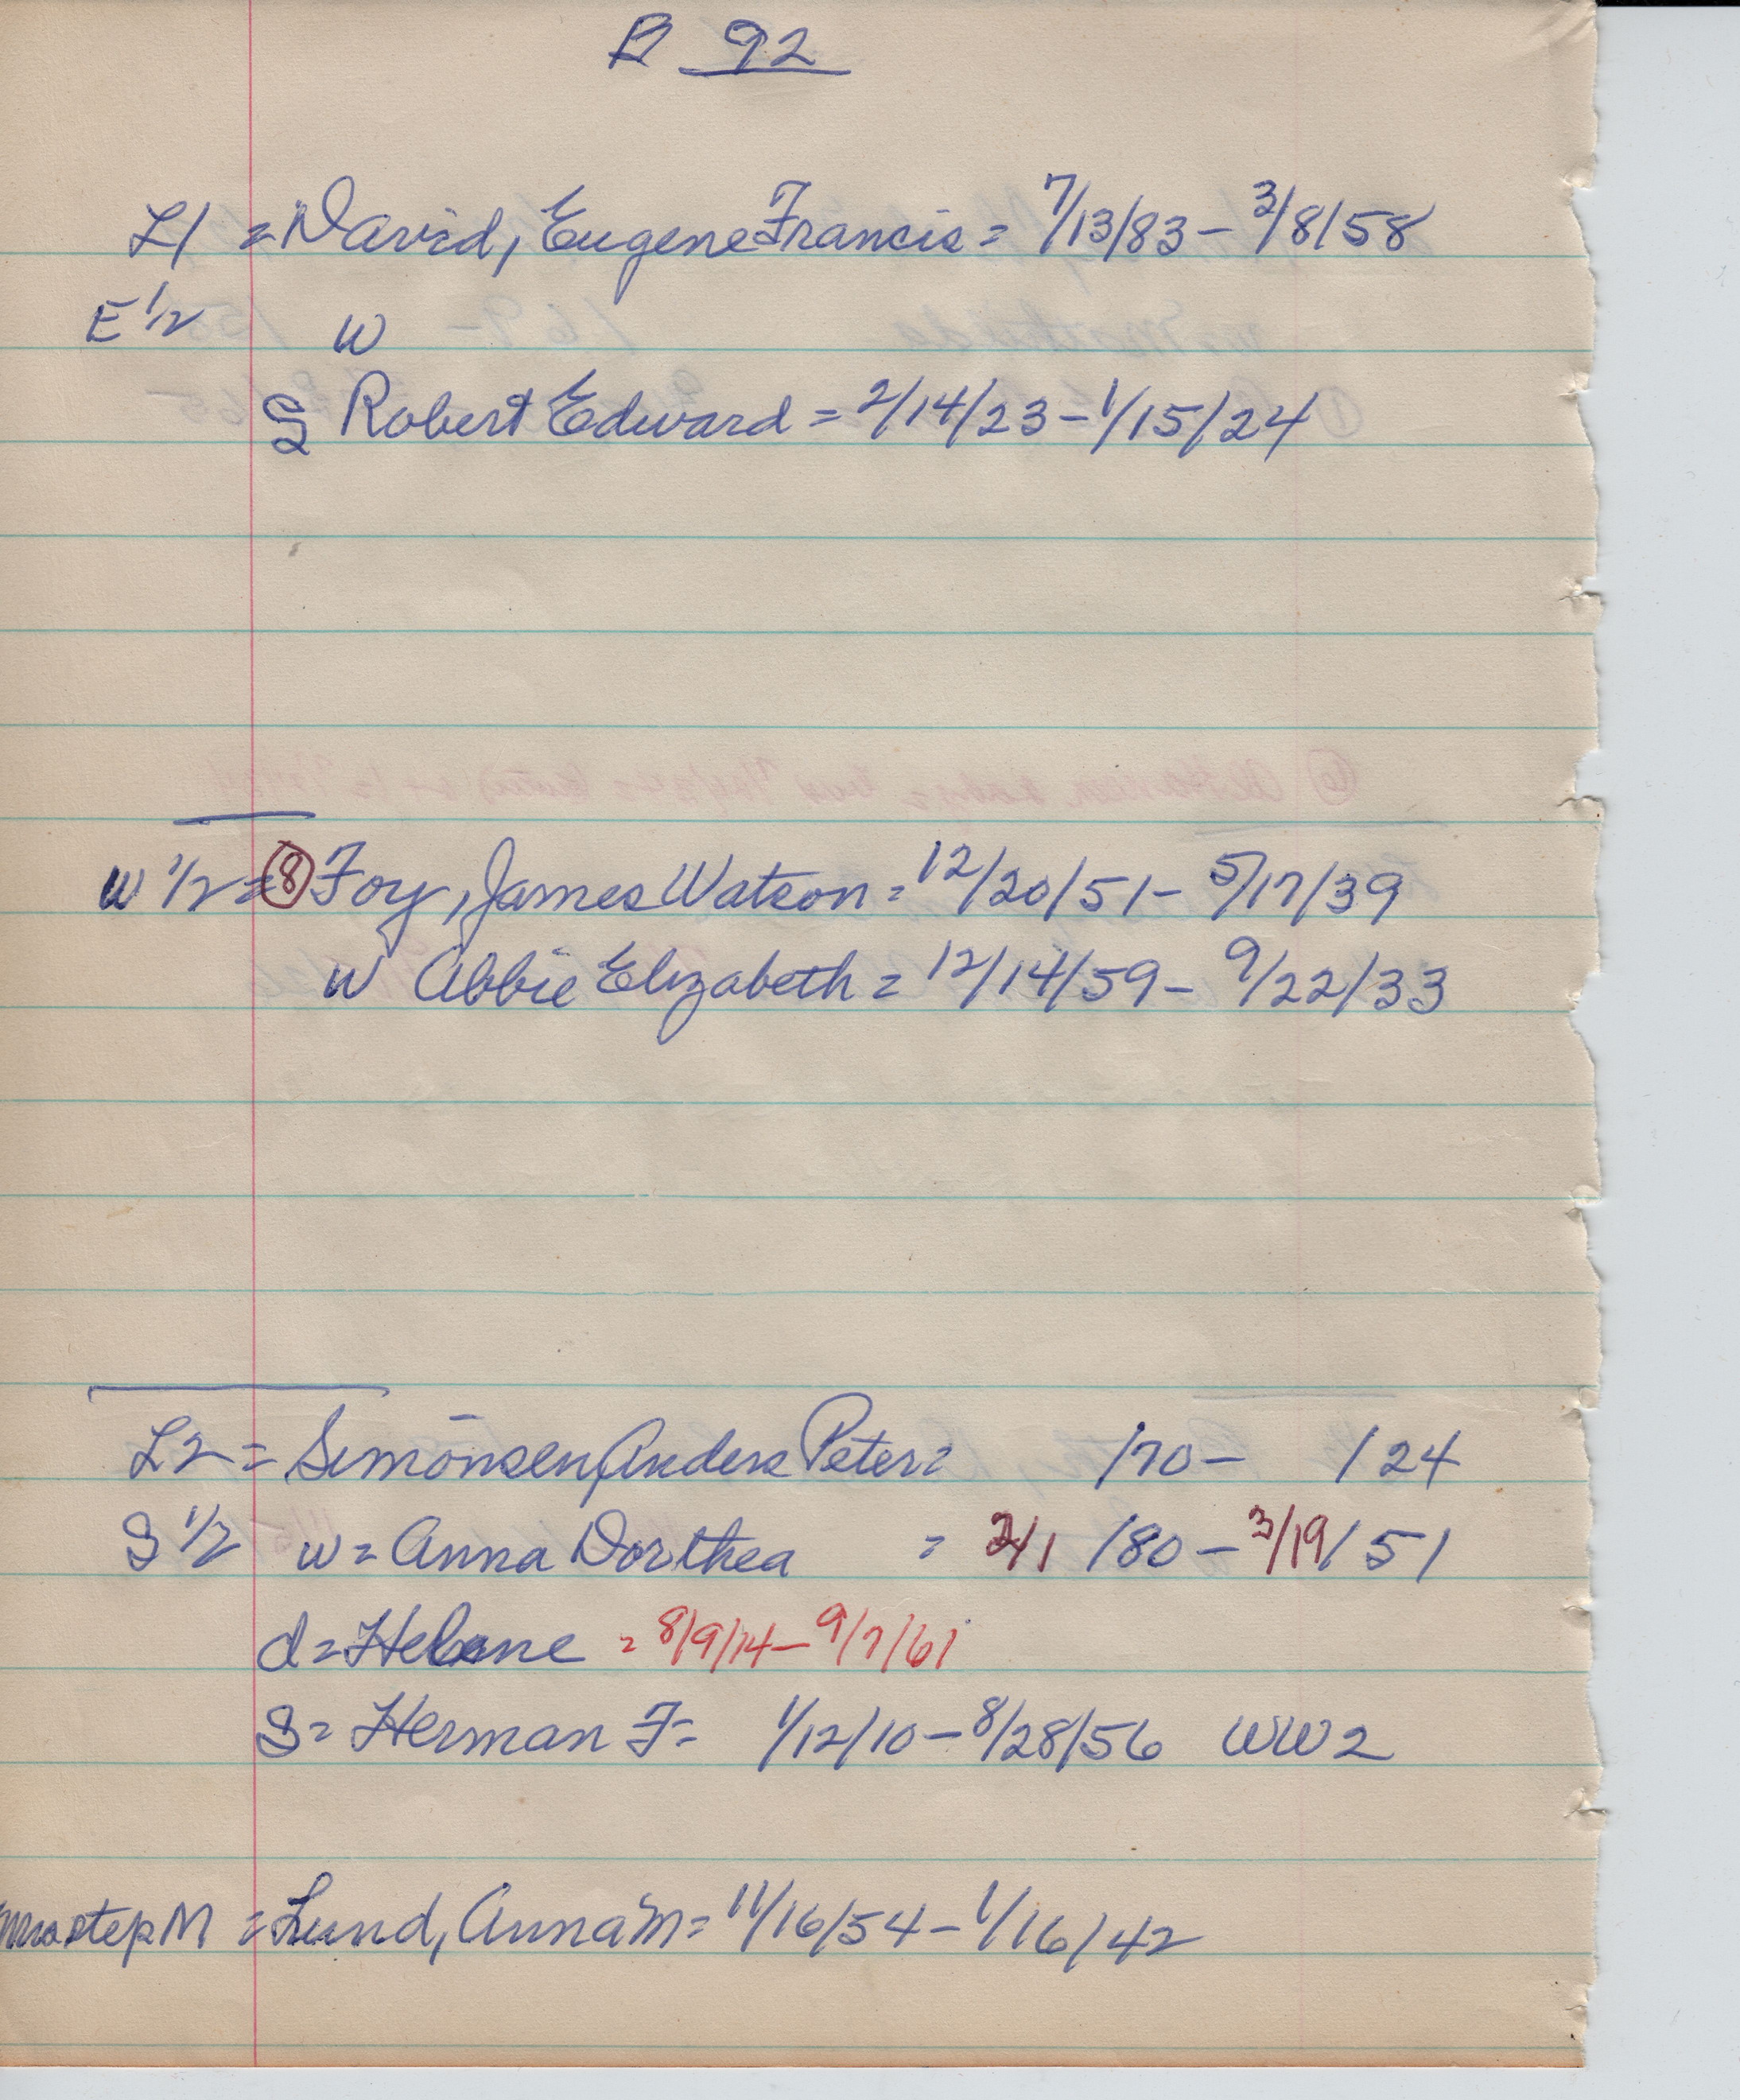 B 92
L1 = David, Eugene Francis = 7/13/83 - 3/8/58
E 1/2 W
S Robert Edward = 2/14/23 - 1/15/24
W 1/2 = 8 Foy, James Watson = 12/20/51 - 5/17/39
W Abbie Elizabeth = 12/14/59 - 9/22/33
L2 = Simonsen, Anders Peter = /70 - /24
S 1/2 w = Anna Dorthea = 2/1 /80 - 3/19/51
d = Helene = 8/9/14 - 9/7/61
S = Herman F = 1/12/10 - 8/28/56 WW2
step M = Lund, Anna M = 11/16/54 - 1/16/42